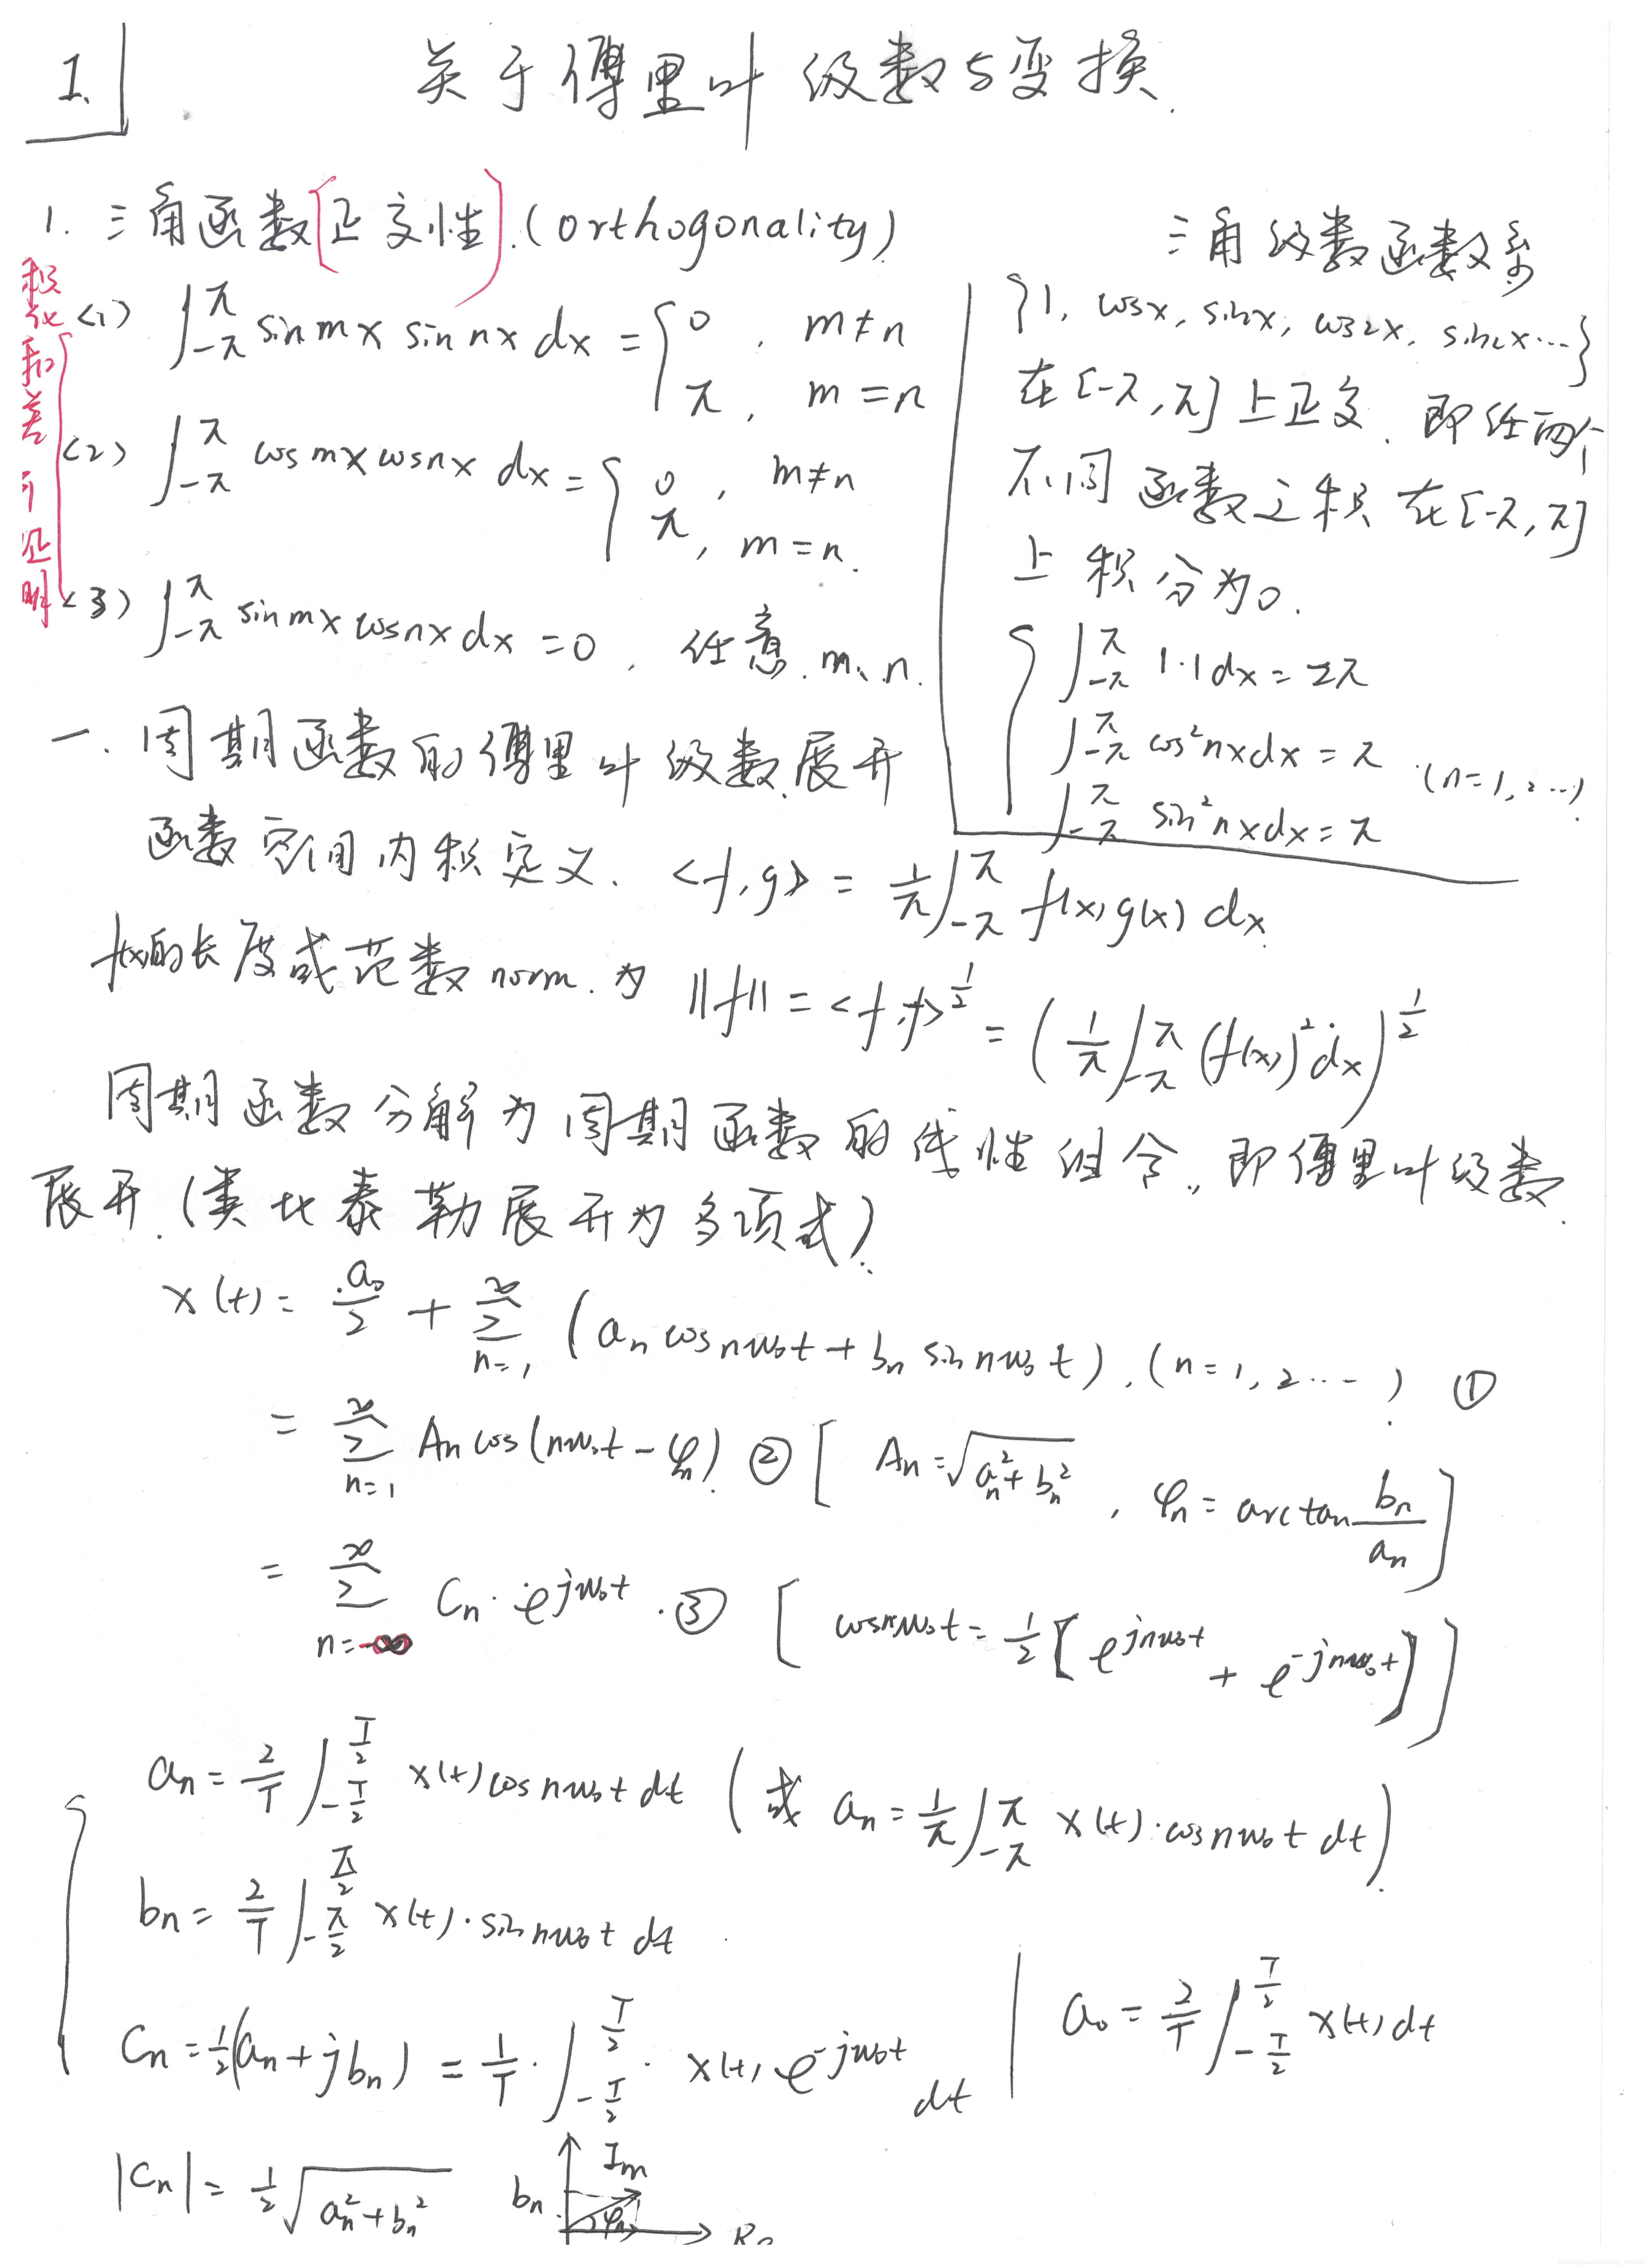 1.
关于傅里叶级数与变换.
1. 三角函数[正交性].(orthogonality)
积化和差可证明
<1> ∫_{-π}^{π} sin mx sin nx dx = { 0, m≠n
π, m=n
<2> ∫_{-π}^{π} cos mx cos nx dx = { 0, m≠n
π, m=n.
<3> ∫_{-π}^{π} sin mx cos nx dx = 0, 任意 m、n.
三角级数函数系
{1, cosx, sinx, cos2x, sin2x…}
在[-π,π]上正交. 即任两个
不同函数之积在[-π,π]
上积分为0.
{ ∫_{-π}^{π} 1·1 dx = 2π
∫_{-π}^{π} cos²nx dx = π (n=1,2…)
∫_{-π}^{π} sin²nx dx = π
一. 周期函数的傅里叶级数展开
函数空间内积定义. <f,g> = 1/π ∫_{-π}^{π} f(x)g(x) dx
f(x)的长度或范数norm.为 ||f|| = <f,f>^{1/2} = (1/π ∫_{-π}^{π} (f(x))² dx)^{1/2}
周期函数分解为周期函数的线性组合,即傅里叶级数
展开.(类比泰勒展开为多项式)
x(t) = a₀/2 + ∑_{n=1}^{∞} (aₙ cos nw₀t + bₙ sin nw₀t), (n=1,2…) ①
= ∑_{n=1}^{∞} Aₙ cos(nw₀t - φₙ) ② [ Aₙ = √(aₙ²+bₙ²), φₙ = arctan bₙ/aₙ ]
= ∑_{n=-∞}^{∞} Cₙ · e^{jw₀t} . ③ [ cos nw₀t = 1/2 [e^{jnw₀t} + e^{-jnw₀t}] ]
aₙ = 2/T ∫_{-T/2}^{T/2} x(t) cos nw₀t dt (或 aₙ = 1/π ∫_{-π}^{π} x(t)·cos nw₀t dt)
bₙ = 2/T ∫_{-π/2}^{π/2} x(t)·sin nw₀t dt
Cₙ = 1/2(aₙ + jbₙ) = 1/T · ∫_{-T/2}^{T/2} · x(t) e^{-jw₀t} dt
a₀ = 2/T ∫_{-T/2}^{T/2} x(t) dt
|Cₙ| = 1/2 √(aₙ²+bₙ²)
Im
bₙ
φₙ